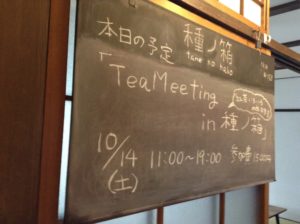 本日の予定 種ノ箱
tane no hako
「TeaMeeting
in 種ノ箱」
10/14 11:00〜19:00 参加費
(土)